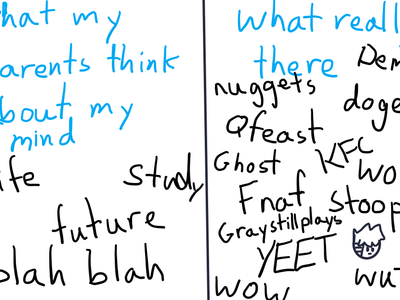 hat my
arents think
bout my
mind
ife
study
future
blah blah
what reall
there
Dem
nuggets
doge
Qfeast
KFC
Ghost
wo
Fnaf
stoop
Graystillplays
YEET
wow
wut